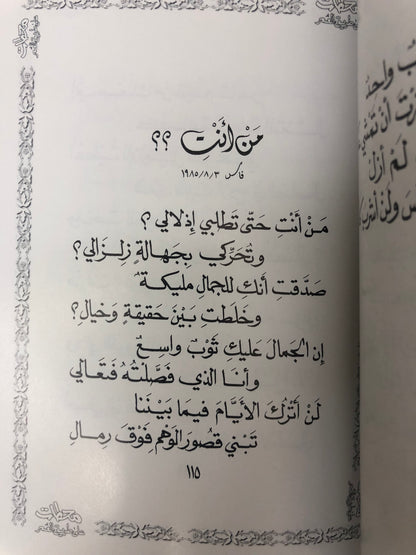 مَنْ أنْتِ ؟؟
فاس ١٩٨٥/٨/٣
مَنْ أنْتِ حَتَّى تَطلبي إذلالي ؟
وتُحَرِّكي بِجَهالةٍ زِلزالي ؟
صَدَّقتِ أنكِ للجمالِ مليكةٌ
وخَلَطتِ بَيْنَ حَقيقةٍ وخيالِ ؟
إن الجَمالَ عليكِ ثَوْبٌ واسِعٌ
وأنا الذي فَصَّلتُهُ فتَعالي
لَنْ أتْرُكَ الأيَّامَ فيما بيْنَنا
تَبْني قصُورَ الوَهْمِ فَوْقَ رِمالِ
١١٥
واحدٌ
أنْ تمْشي
لَمْ أزَلْ
ولنْ أشربَ